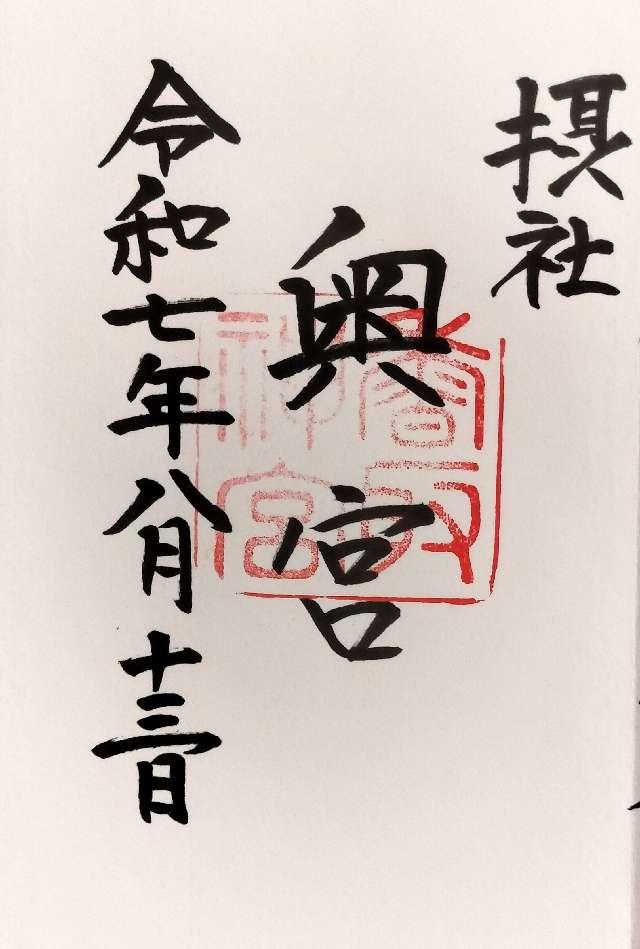 摂社
奥宮
香取
神宮
令和七年八月十三日